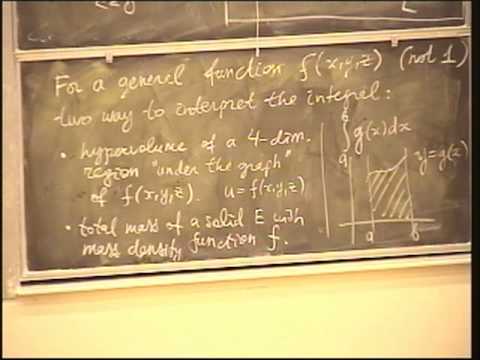 For a general function f(x,y,z) (not 1)
two way to interpret the integral:
• hypervolume of a 4-dim.
region "under the graph"
of f(x,y,z). u=f(x,y,z)
• total mass of a solid E with
mass density function f.
∫ₐᵇ g(x)dx
y=g(x)
a b